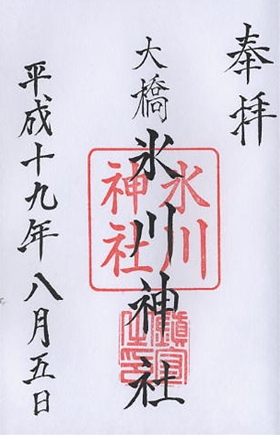 奉拝
大橋
氷川神社
氷川
神社
平成十九年八月五日